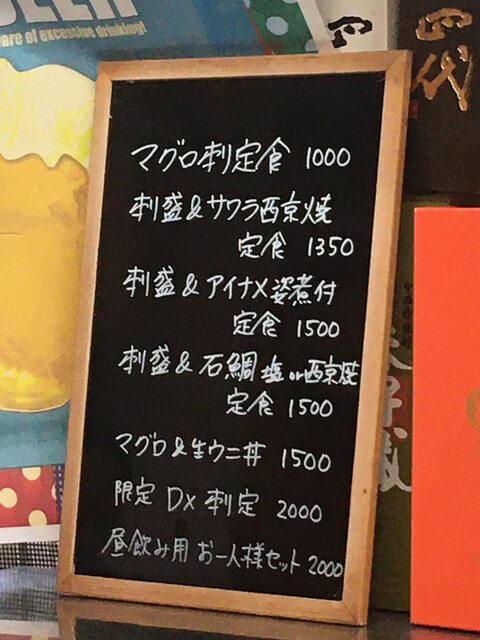 are of excessive drinking!
四代
マグロ刺定食 1000
刺盛&サワラ西京焼
定食 1350
刺盛&アイナメ姿煮付
定食 1500
刺盛&石鯛塩or西京焼
定食 1500
マグロ&生ウニ丼 1500
限定 DX 刺定 2000
昼飲み用 お一人様セット 2000